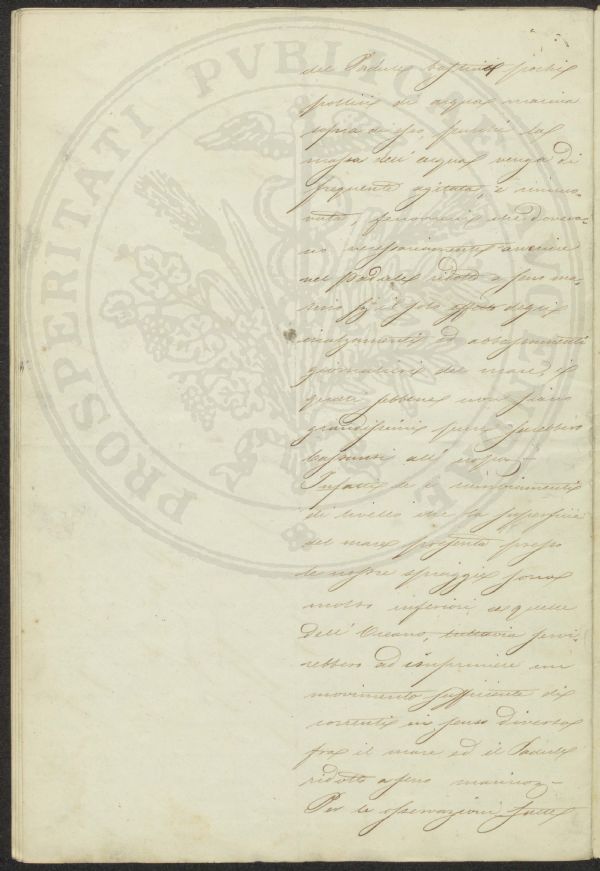 PROSPERITATI PVBLICAE AVGENDAE
del Padule bastino pochi
pollici di acqua marina
sopra di esso, purchè la
massa dell'acqua venga di
frequente agitata, e rinno-
vata, fenomeni che dovran-
no necessariamente avvenire
nel padule ridotto a seno ma-
rino pel solo effetto degli
inalzamenti ed abbassamenti
giornalieri del mare, i
quali sebbene non siano
grandissimi pure sarebbero
bastanti all'uopo —
Infatti se i cambiamenti
di livello che la superficie
del mare presenta presso
le nostre spiaggie sono
molto inferiori a quelle
dell'Oceano, tuttavia servi-
rebbero ad imprimere un
movimento sufficiente di
correnti in senso diverso
fra il mare ed il Padule
ridotto a seno marino —
Per le osservazioni fatte